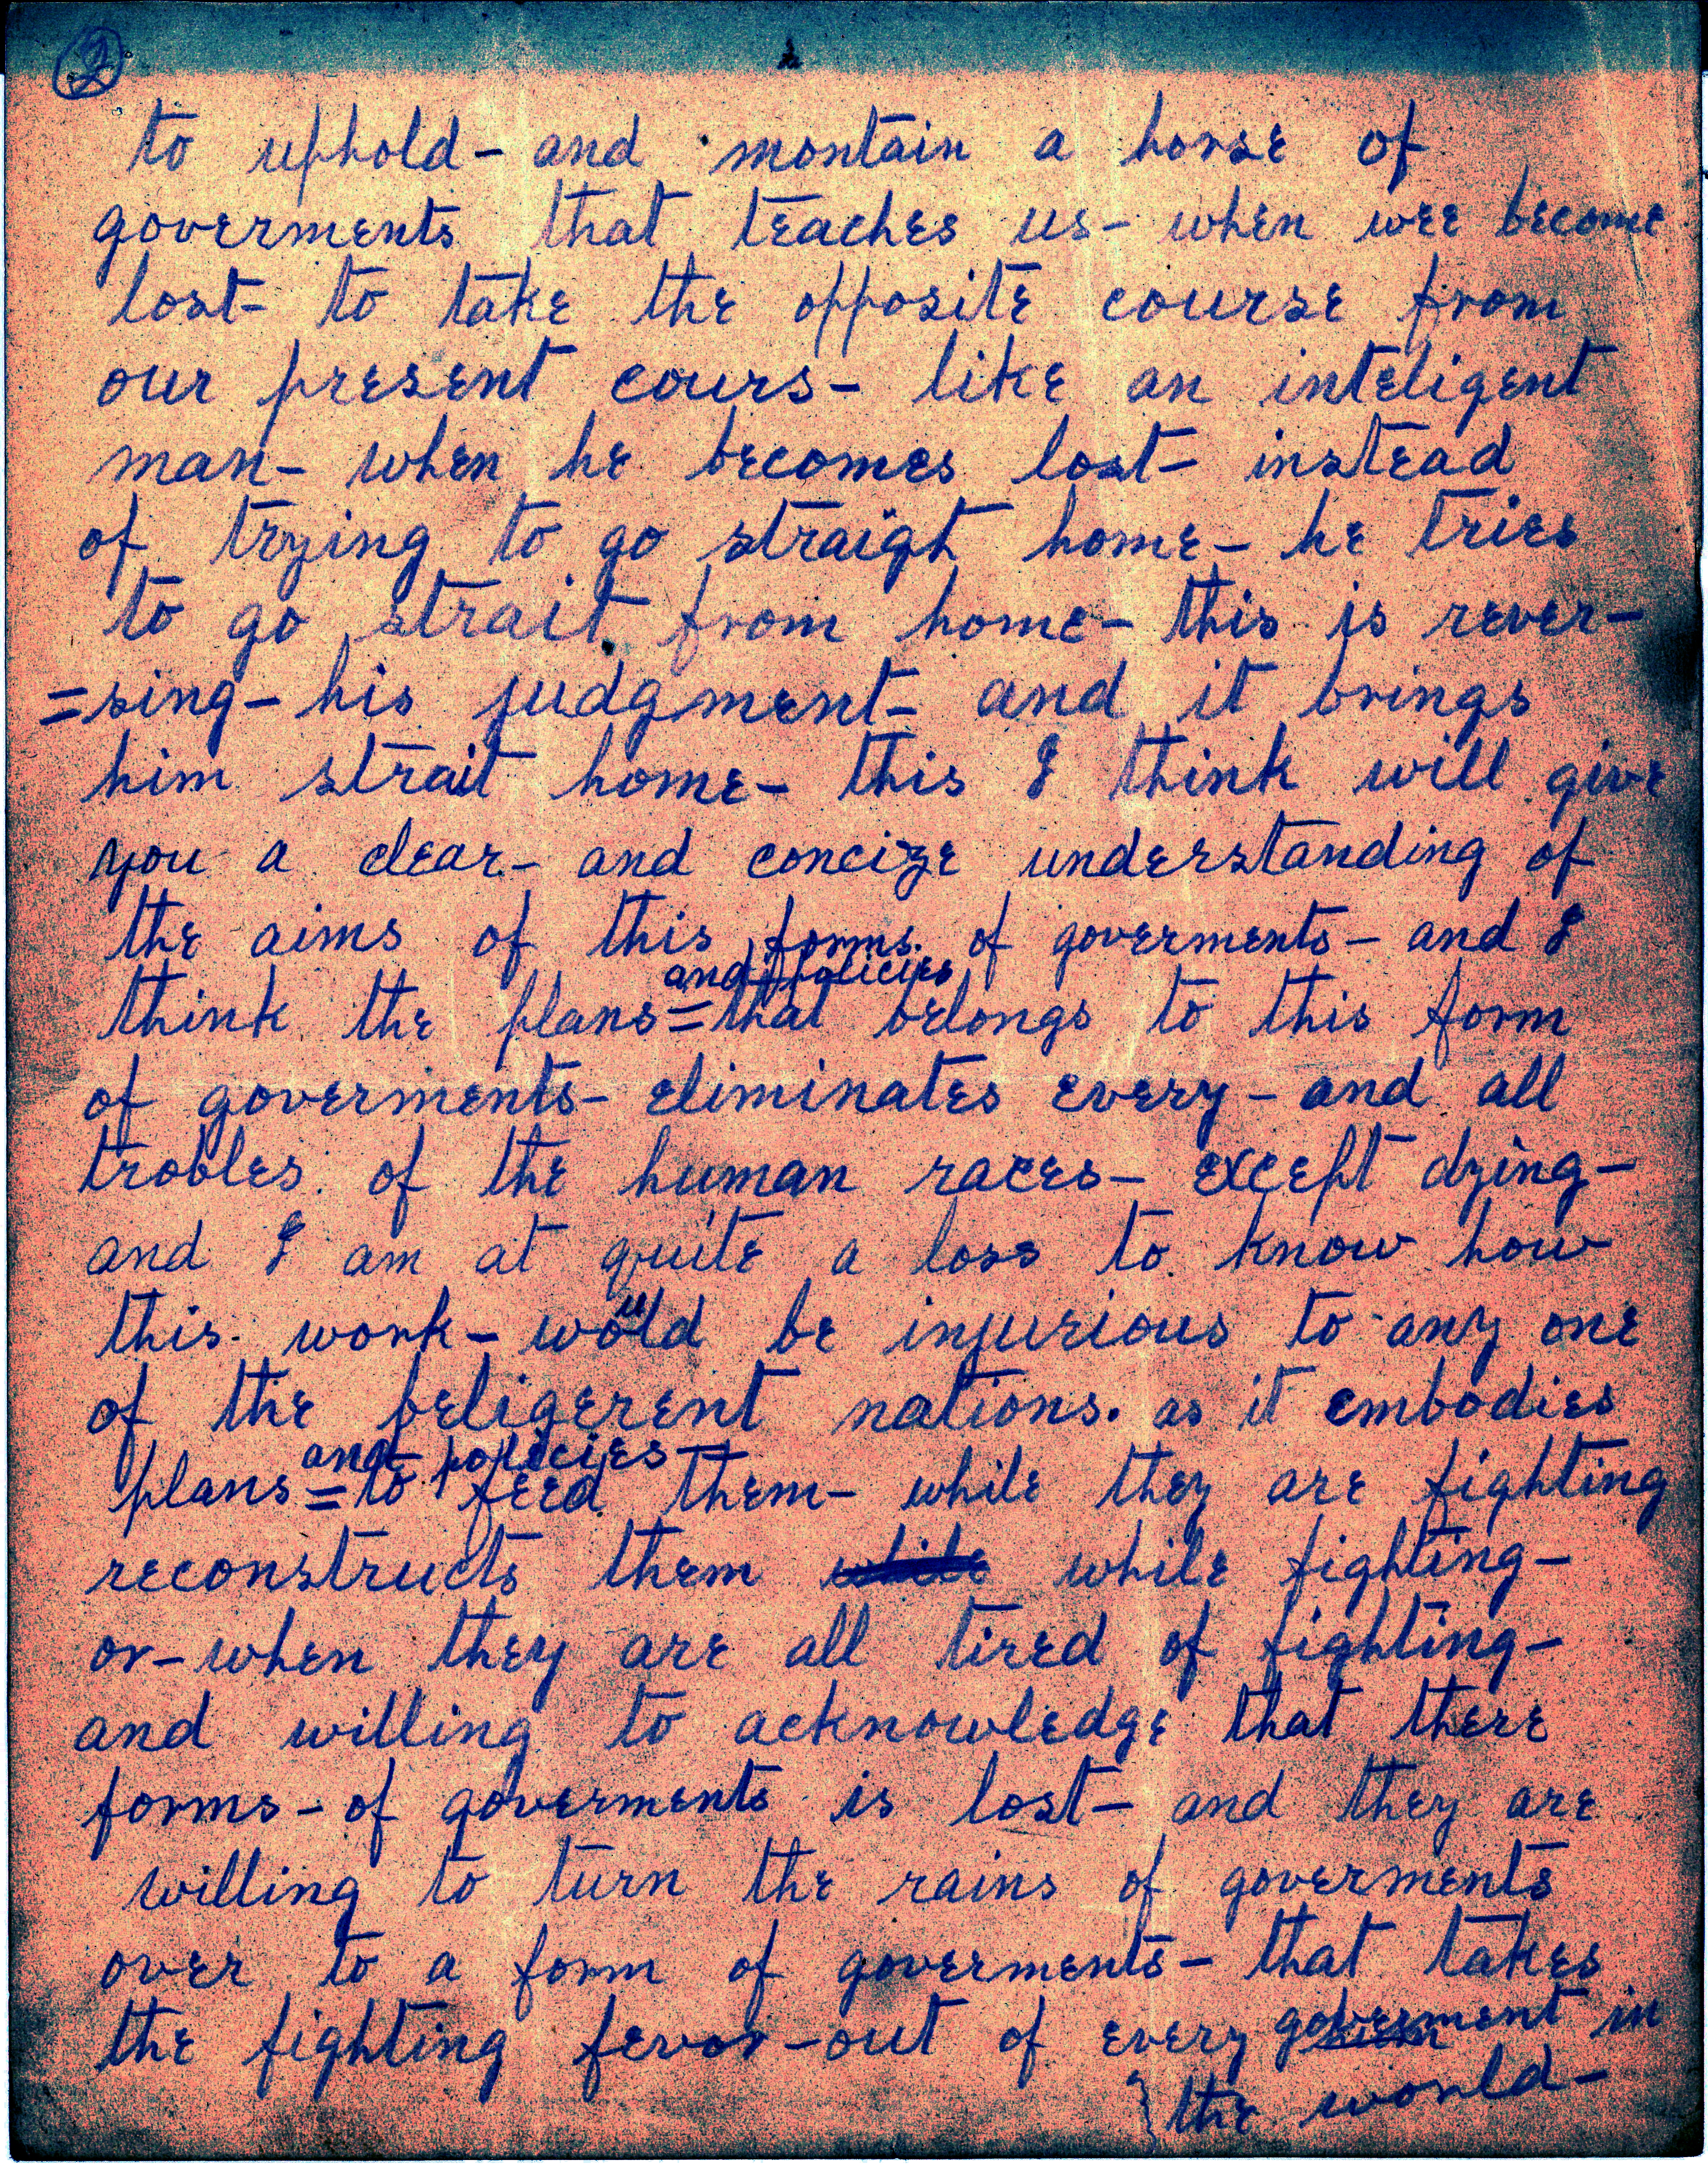 2
to uphold - and montain a horse of
goverments that teaches us - when wee become
lost - to take the opposite course from
our present cours - like an inteligent
man - when he becomes lost - instead
of trying to go straight home - he tries
to go strait from home - this is rever-
=sing - his judgment - and it brings
him strait home - this I think will give
you a clear - and concize understanding of
the aims of this forms of goverments - and I
and policies
think the plans = that belongs to this form
of goverments - eliminates every - and all
trobles of the human races - except dying -
and I am at quite a loss to know how
this work - would be injurious to any one
of the beligerent nations. as it embodies
and policies -
plans = to feed them - while they are fighting
reconstructs them while while fighting -
or - when they are all tired of fighting -
and willing to acknowledge that there
forms - of goverments is lost - and they are
willing to turn the rains of goverments
over to a form of goverments - that takes
the fighting fevor - out of every goverment in
the world -